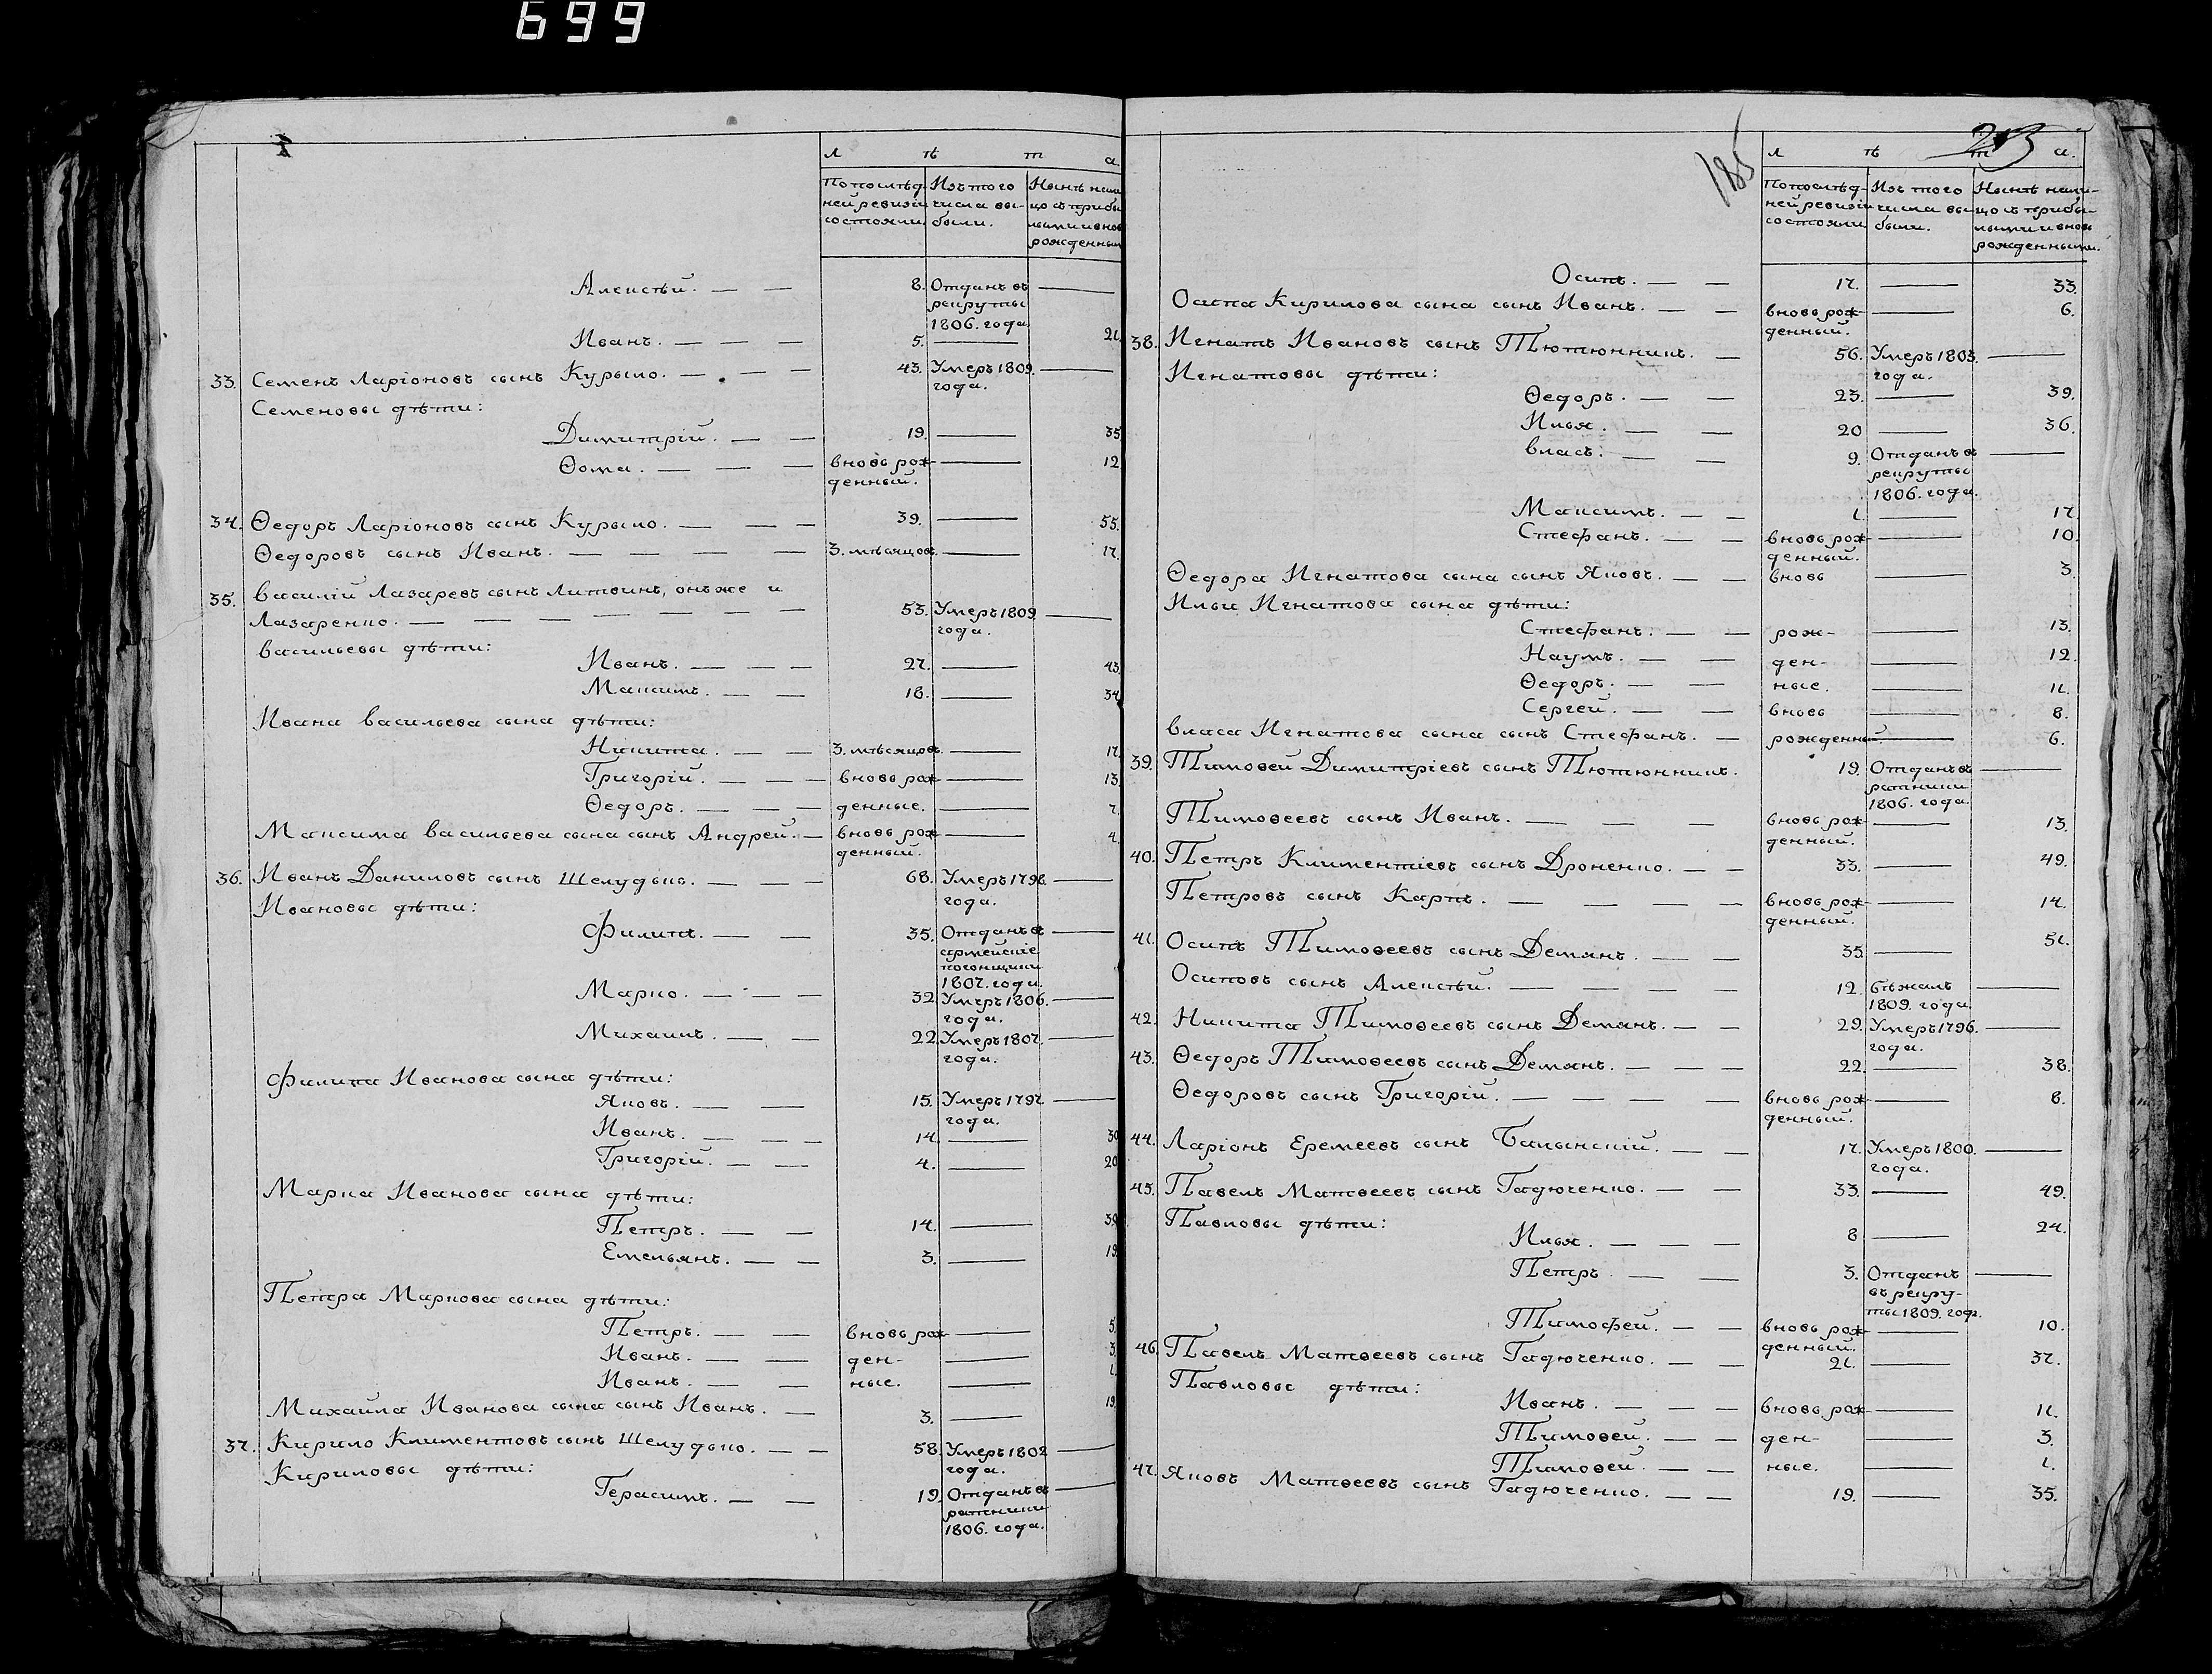 699
л ѣ т а.
Попослѣд- Изъ того Нынѣ нали
ней ревизіи числа вы- цо съ прибы
состояли были. лыми и внов
рожденным
Алексѣй. — — 8. Отданъ въ —
рекруты
1806. года.
Иванъ. — — — 5. — 21.
33. Семенъ Ларіоновъ сынъ Курыло. — — — 43. Умеръ 1809. —
года.
Семеновы дѣти:
Димитрій. — — 19. — 35
Ѳома. — — — вновь рож- — 12
денный.
34. Ѳедоръ Ларіоновъ сынъ Курыло. — — — 39. — 55.
Ѳедоровъ сынъ Иванъ. — — — — 3. мѣсяцов. — 17.
35. Василій Лазаревъ сынъ Литвинъ, онъ же и
Лазаренко. — — — — — — — 53. Умеръ 1809 —
года.
Васильевы дѣти:
Иванъ. — — — 27. — 43
Максимъ. — — 18. — 34
Ивана Васильева сына дѣти:
Никита. — — 3. мѣсяцов. — 17.
Григорій. — — — вновь рож- — 13
Ѳедоръ. — — — денные. — 7.
Максима Васильева сына сынъ Андрей. — вновь рож- — 4.
денный.
36. Иванъ Даниловъ сынъ Шелудько. — — — 68. Умеръ 1798. —
года.
Ивановы дѣти:
Филипъ. — — 35. Отданъ въ —
армейскіе
погонщики
1807. года.
Марко. — — — 32. Умеръ 1806. —
года.
Михаилъ. — — 22. Умеръ 1807. —
года.
Филипа Иванова сына дѣти:
Яковъ. — — 15. Умеръ 1797. —
года.
Иванъ. — — — 14. — 30
Григорій. — — 4. — 20
Марка Иванова сына дѣти:
Петръ. — — 14. — 30
Емельянъ. — — 3. — 19
Петра Маркова сына дѣти:
Петръ. — — вновь рож- — 5.
Иванъ. — — ден- — 3.
Иванъ. — — ные. — 1.
Михаила Иванова сына сынъ Иванъ. — 3. — 19.
37. Кирило Климентовъ сынъ Шелудько. — — 58. Умеръ 1802 —
года.
Кириловы дѣти:
Герасимъ. — — 19. Отданъ въ —
ратники
1806. года.
185
л ѣ т а.
Попослѣд- Изъ того Нынѣ нали-
ней ревизіи числа вы- цо съ прибы-
состояли были. лыми и вновь
рожденными.
Осипъ. — — 17. — 33.
Осипа Кирилова сына сынъ Иванъ. — — вновь рож- — 6.
денный.
38. Игнатъ Ивановъ сынъ Тютюнникъ. — 56. Умеръ 1803. —
года.
Игнатовы дѣти:
Ѳедоръ. — — 23. — 39.
Илья. — — 20 — 36.
Власъ. — — 9. Отданъ въ —
рекруты
1806. года.
Максимъ. — — 1. — 17.
Стефанъ. — — вновь рож- — 10.
денный.
Ѳедора Игнатова сына сынъ Яковъ. — — вновь — 3.
Ильи Игнатова сына дѣти:
Стефанъ. — — рож- — 13.
Наумъ. — — ден- — 12.
Ѳедоръ. — — ные. — 11.
Сергей. — — вновь — 8.
Власа Игнатова сына сынъ Стефанъ. — рожденный. — 6.
39. Тимоѳей Димитріевъ сынъ Тютюнникъ. 19. Отданъ въ —
ратники
1806. года.
Тимоѳеевъ сынъ Иванъ. — — — вновь рож- — 13.
денный.
40. Петръ Климентіевъ сынъ Дроненко. — — 33. — 49.
Петровъ сынъ Карпъ. — — — — вновь рож- — 14.
денный.
41. Осипъ Тимоѳеевъ сынъ Демянъ. — — 35. — 51.
Осиповъ сынъ Алексѣй. — — — — 12. бѣжалъ —
1809. года.
42. Никита Тимоѳеевъ сынъ Демянъ. — — 29. Умеръ 1796. —
года.
43. Ѳедоръ Тимоѳеевъ сынъ Демянъ. — — — 22. — 38.
Ѳедоровъ сынъ Григорій. — — — — вновь рож- — 8.
денный.
44. Ларіонъ Еремеевъ сынъ Балынскій. — — 17. Умеръ 1800. —
года.
45. Павелъ Матвеевъ сынъ Гадюченко. — — 33. — 49.
Павловы дѣти:
Илья. — — — 8 — 24.
Петръ — — 3. Отданъ —
въ рекру-
ты 1809. года.
Тимофей. — — вновь рож- — 10.
денный.
46. Павелъ Матвеевъ сынъ Гадюченко. — — 21. — 37.
Павловы дѣти:
Иванъ. — — — вновь рож- — 11.
Тимоѳей. — — ден- — 3.
Тимоѳей. — — ные. — 1.
47. Яковъ Матвеевъ сынъ Гадюченко. — — 19. — 35.